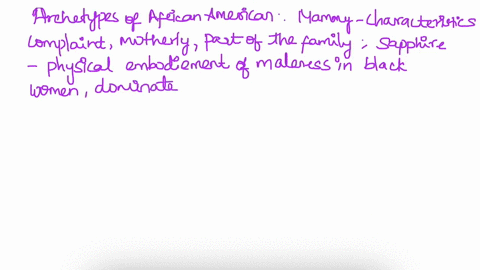 Archetypes of African-American:. Mammy-characteristics
complaint, motherly, part of the family ; Sapphire
- physical embodiement of maleness in black
women, dominate